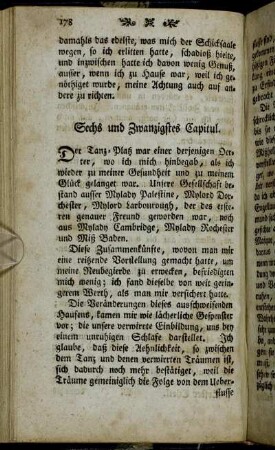 178
damahls das edelste, was mich der Schicksaale
wegen, so ich erlitten hatte, schadloß hielte,
und inzwischen hatte ich davon wenig Genuß,
ausser, wenn ich zu Hause war, weil ich ge-
nöthiget wurde, meine Achtung auch auf an-
dere zu richten.
Sechs und Zwanzigstes Capitul.
Der Tanz-Platz war einer derjenigen Oer-
ter, wo ich mich hinbegab, als ich
wieder zu meiner Gesundheit und zu meinem
Glück gelanget war. Unsere Gesellschaft be-
stand ausser Mylady Palestine, Mylord Dor-
chester, Mylord Harbourough, der des erste-
ren genauer Freund geworden war, noch
aus Mylady Cambridge, Mylady Rochester
und Miß Baden.
Diese Zusammenkünfte, wovon man mir
eine reitzende Vorstellung gemacht hatte, um
meine Neubegierde zu erwecken, befriedigten
mich wenig; ich fand dieselbe von weit gerin-
gerem Werth, als man mir versichert hatte.
Die Veränderungen dieses ausschweifenden
Haufens, kamen mir wie lächerliche Gespenster
vor; die unsere verwirrte Einbildung, uns bey
einem unruhigen Schlafe darstellet. Ich
glaube, daß diese Aehnlichkeit, so zwischen
dem Tanz und denen verwirrten Träumen ist,
sich dadurch noch mehr bestätiget, weil die
Träume gemeiniglich die Folge von dem Ueber-
flusse